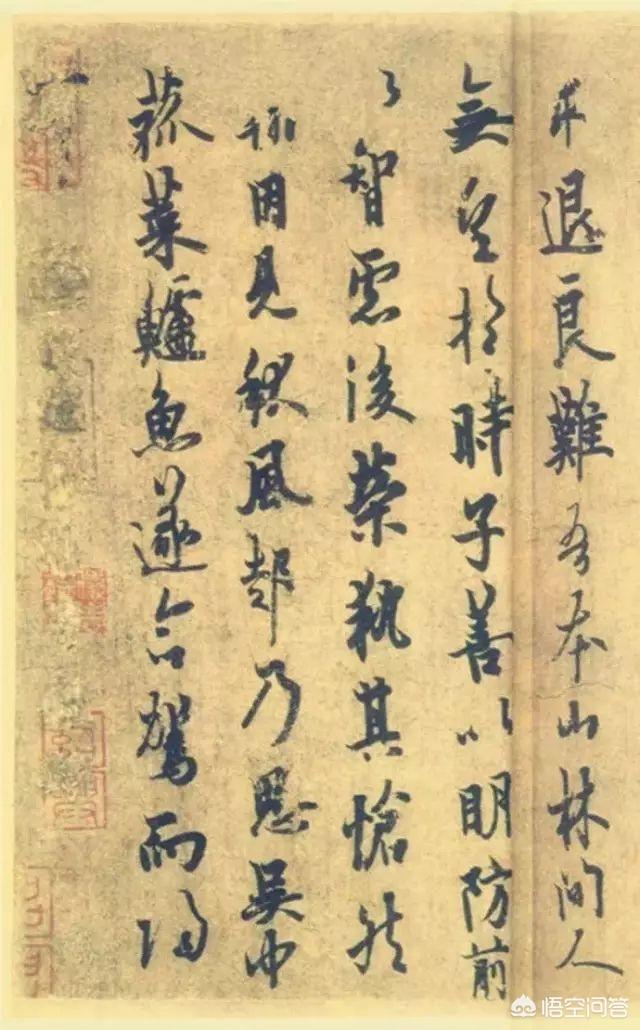 求退良難吾本山林間人
無望於時子善以明防前
以智慮後榮執其愴然
翰因見秋風起乃思吳中
菰菜鱸魚遂命駕而歸
悟空问答